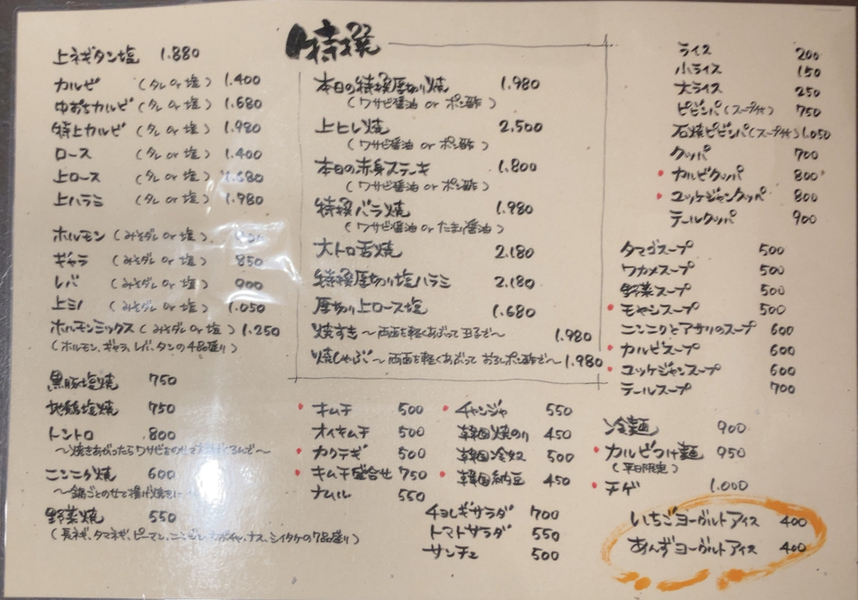 上ネギタン塩 1.880
カルビ (タレor塩) 1.400
中おちカルビ (タレor塩) 1.680
特上カルビ (タレor塩) 1.980
ロース (タレor塩) 1.400
上ロース (タレor塩) 1.680
上ハラミ (タレor塩) 1.980
ホルモン (みそダレor塩)
ギャラ (みそダレor塩) 850
レバ (みそダレor塩) 900
上ミノ (みそダレor塩) 1.050
ホルモンミックス (みそダレor塩) 1.250
(ホルモン、ギャラ、レバ、タンの4品盛り)
黒豚塩焼 750
地鶏塩焼 750
トントロ 800
〜焼きあがったらワサビをのせて
ニンニク焼 600
〜鍋ごとのせて揚げ焼きに
野菜焼 550
(長ネギ、タマネギ、ピーマン、ニンジン、カボチャ、ナス、シイタケの7品盛り)
特撰
本日の特撰厚切り焼 1.980
(ワサビ醤油 or ポン酢)
上ヒレ焼 2.500
(ワサビ醤油 or ポン酢)
本日の赤身ステーキ 1.800
(ワサビ醤油 or ポン酢)
特撰バラ焼 1.980
(ワサビ醤油 or たまり醤油)
大トロ舌焼 2.180
特撰厚切り塩ハラミ 2.180
厚切り上ロース塩 1.680
焼すき〜両面を軽くあぶって玉子で〜 1.980
焼しゃぶ〜両面を軽くあぶっておろしポン酢で〜 1.980
キムチ 500
オイキムチ 500
カクテギ 500
キムチ盛合せ 750
ナムル 550
チャンジャ 550
韓国焼のり 450
韓国冷奴 500
韓国納豆 450
チョレギサラダ 700
トマトサラダ 550
サンチュ 500
ライス 200
小ライス 150
大ライス 250
ビビンバ(スープ付) 750
石焼ビビンバ(スープ付) 1.050
クッパ 700
カルビクッパ 800
ユッケジャンクッパ 800
テールクッパ 900
タマゴスープ 500
ワカメスープ 500
野菜スープ 500
モヤシスープ 500
ニンニクとアサリのスープ 600
カルビスープ 600
ユッケジャンスープ 600
テールスープ 700
冷麺 900
カルビつけ麺 950
(平日限定)
チゲ 1.000
いちごヨーグルトアイス 400
あんずヨーグルトアイス 400